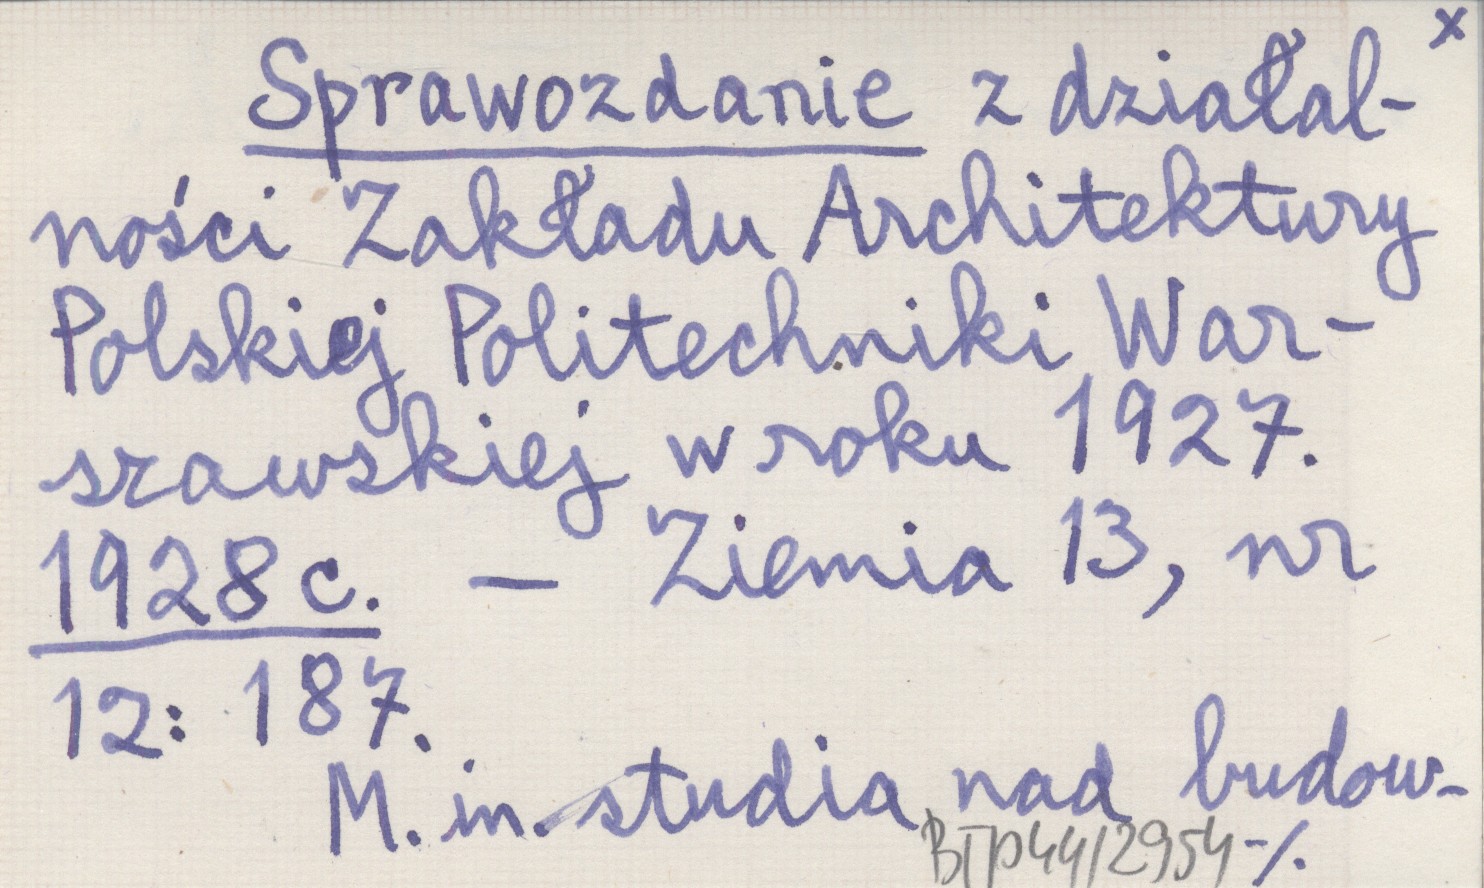 x
Sprawozdanie z działal-
ności Zakładu Architektury
Polskiej Politechniki War-
szawskiej w roku 1927.
1928 c. — Ziemia 13, nr
12: 187.
M. in. studia nad budow-
BTP44/2954 -/.